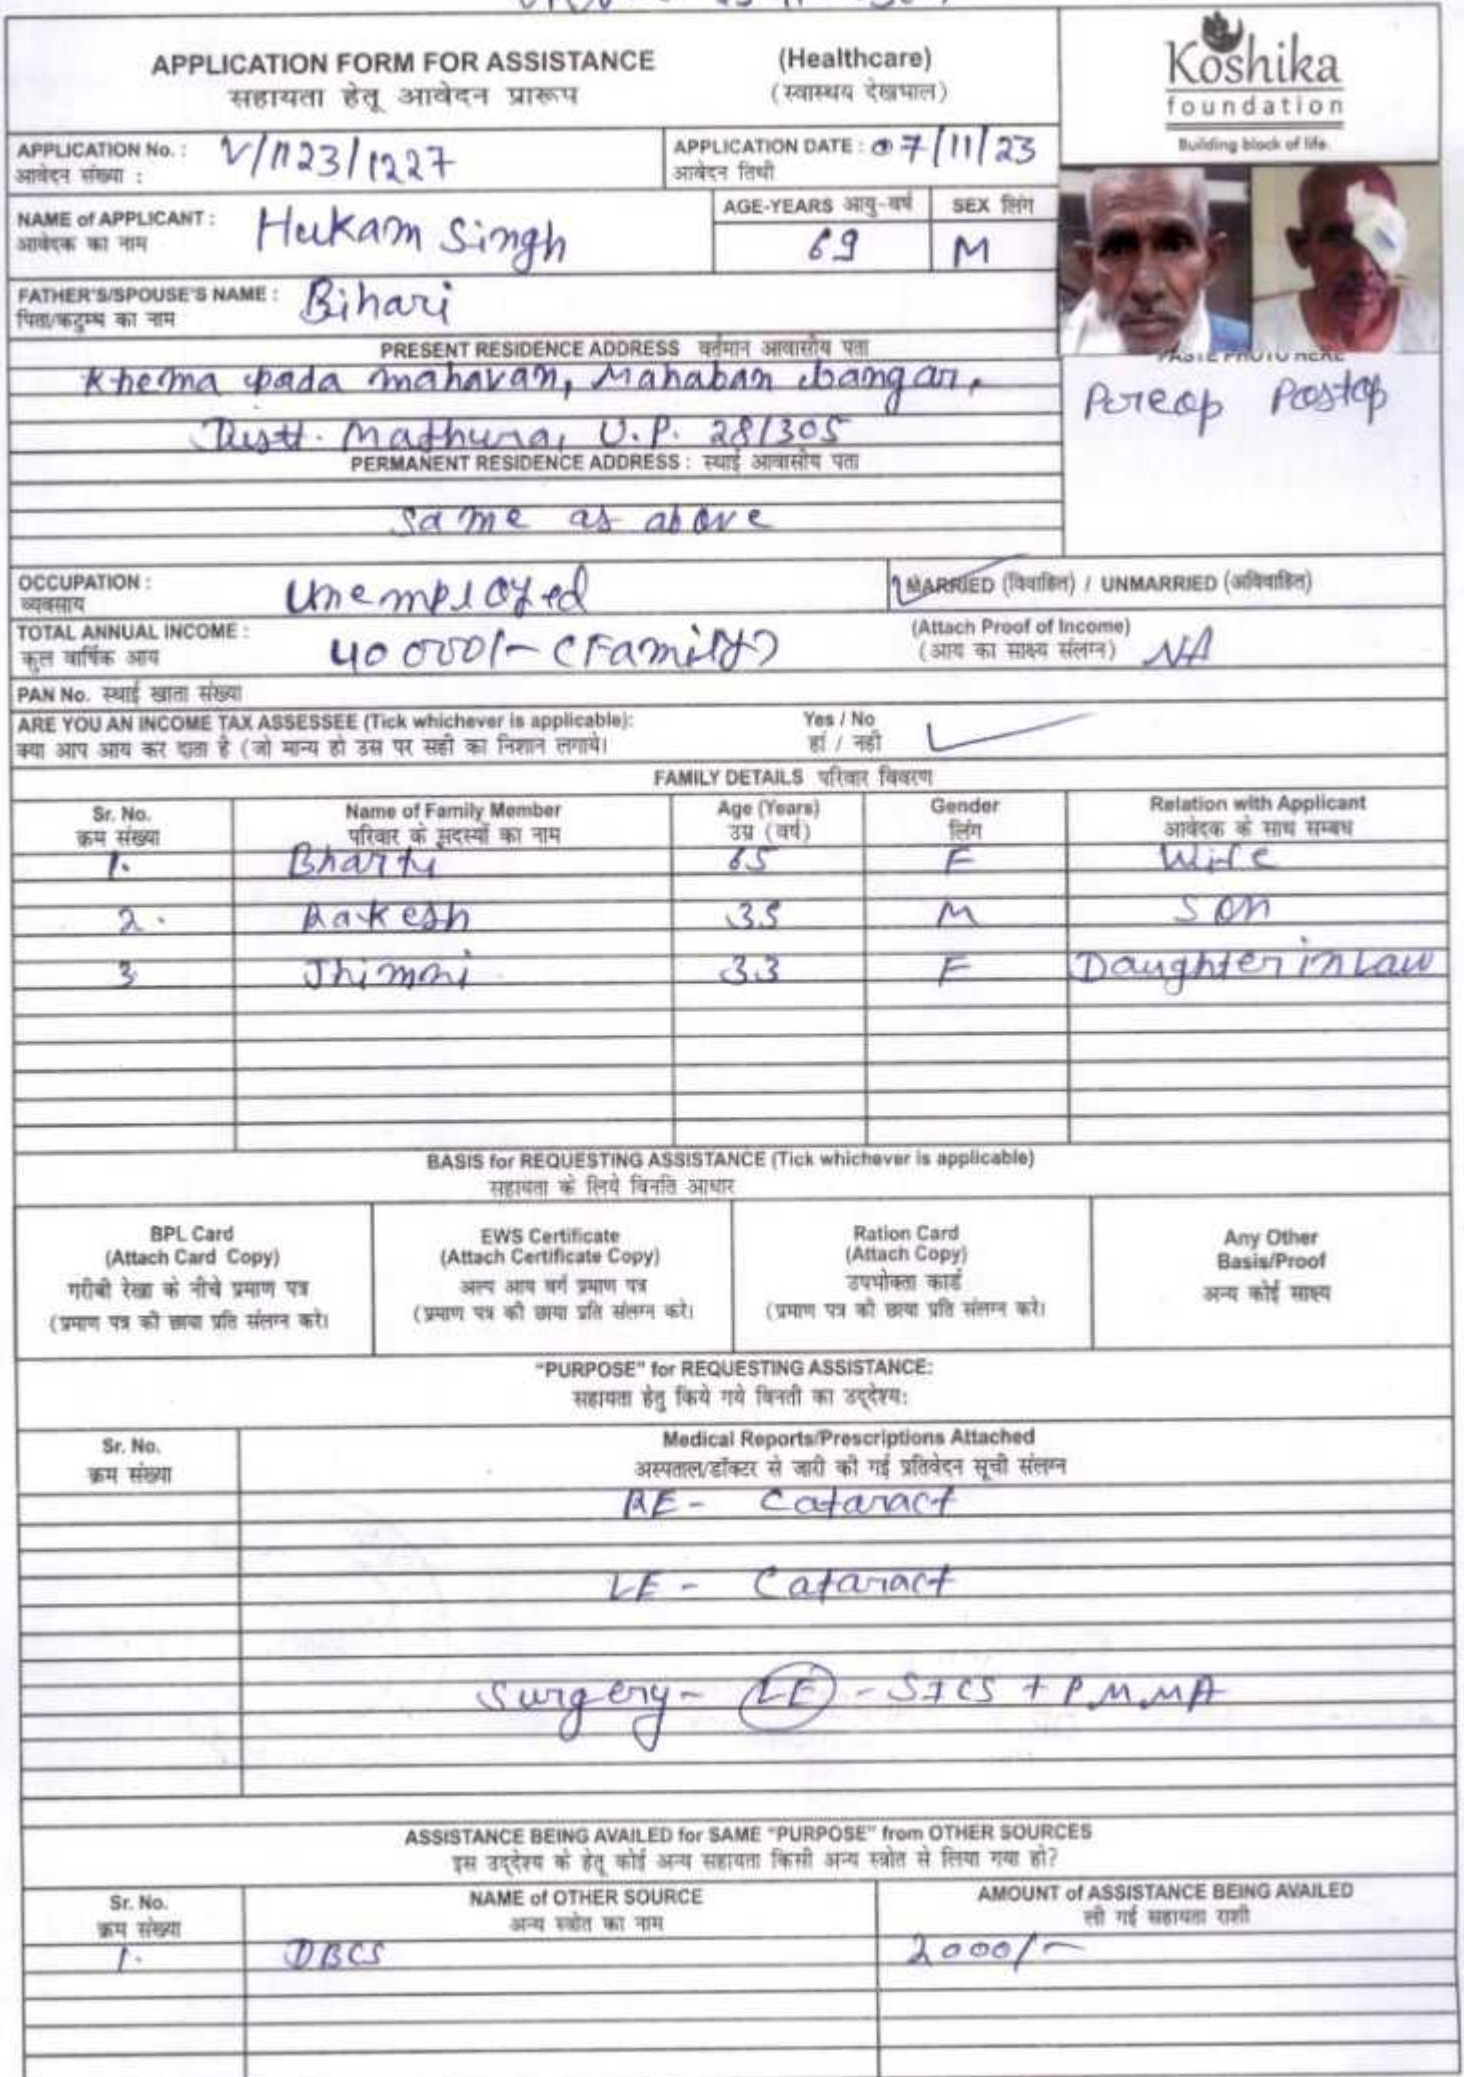 APPLICATION FORM FOR ASSISTANCE (Healthcare)
सहायता हेतू आवेदन प्रारूप (स्वास्थय देखभाल)
Koshika
foundation
Building block of life.
APPLICATION No. : V/1123/1227
आवेदन संख्या :
APPLICATION DATE : 07/11/23
आवेदन तिथी
NAME of APPLICANT : Hukam Singh
आवेदक का नाम
AGE-YEARS आयु-वर्ष SEX लिंग
69 M
FATHER'S/SPOUSE'S NAME : Bihari
पिता/कटुम्ब का नाम
PRESENT RESIDENCE ADDRESS वर्तमान आवासीय पता
Khema pada mahavan, Mahaban bangar,
Distt. Mathura, U.P. 281305
PASTE PHOTO HERE
Preop Postop
PERMANENT RESIDENCE ADDRESS : स्थाई आवासीय पता
same as above
OCCUPATION : Unemployed
व्यवसाय
MARRIED (विवाहित) / UNMARRIED (अविवाहित)
TOTAL ANNUAL INCOME : 40000/- (Family)
कुल वार्षिक आय
(Attach Proof of Income)
(आय का साक्ष्य संलग्न) NA
PAN No. स्थाई खाता संख्या
ARE YOU AN INCOME TAX ASSESSEE (Tick whichever is applicable): Yes / No
क्या आप आय कर दाता है (जो मान्य हो उस पर सही का निशान लगाये। हां / नही
FAMILY DETAILS परिवार विवरण
Sr. No. Name of Family Member Age (Years) Gender Relation with Applicant
क्रम संख्या परिवार के सदस्यों का नाम उम्र (वर्ष) लिंग आवेदक के साथ सम्बध
1. Bharty 65 F Wife
2. Rakesh 35 M Son
3 Jhimmi 33 F Daughter in Law
BASIS for REQUESTING ASSISTANCE (Tick whichever is applicable)
सहायता के लिये विनति आधार
BPL Card
(Attach Card Copy)
गरीबी रेखा के नीचे प्रमाण पत्र
(प्रमाण पत्र की छाया प्रति संलग्न करे।
EWS Certificate
(Attach Certificate Copy)
अल्प आय वर्ग प्रमाण पत्र
(प्रमाण पत्र की छाया प्रति संलग्न करे।
Ration Card
(Attach Copy)
उपभोक्ता कार्ड
(प्रमाण पत्र की छाया प्रति संलग्न करे।
Any Other
Basis/Proof
अन्य कोई साक्ष्य
"PURPOSE" for REQUESTING ASSISTANCE:
सहायता हेतु किये गये विनती का उद्देश्य:
Sr. No. Medical Reports/Prescriptions Attached
क्रम संख्या अस्पताल/डॉक्टर से जारी की गई प्रतिवेदन सूची संलग्न
RE - Cataract
LE - Cataract
Surgery - LE - SICS + PMMA
ASSISTANCE BEING AVAILED for SAME "PURPOSE" from OTHER SOURCES
इस उद्देश्य के हेतू कोई अन्य सहायता किसी अन्य स्त्रोत से लिया गया हो?
Sr. No. NAME of OTHER SOURCE AMOUNT of ASSISTANCE BEING AVAILED
क्रम संख्या अन्य स्त्रोत का नाम ली गई सहायता राशी
1. DBCS 2000/-